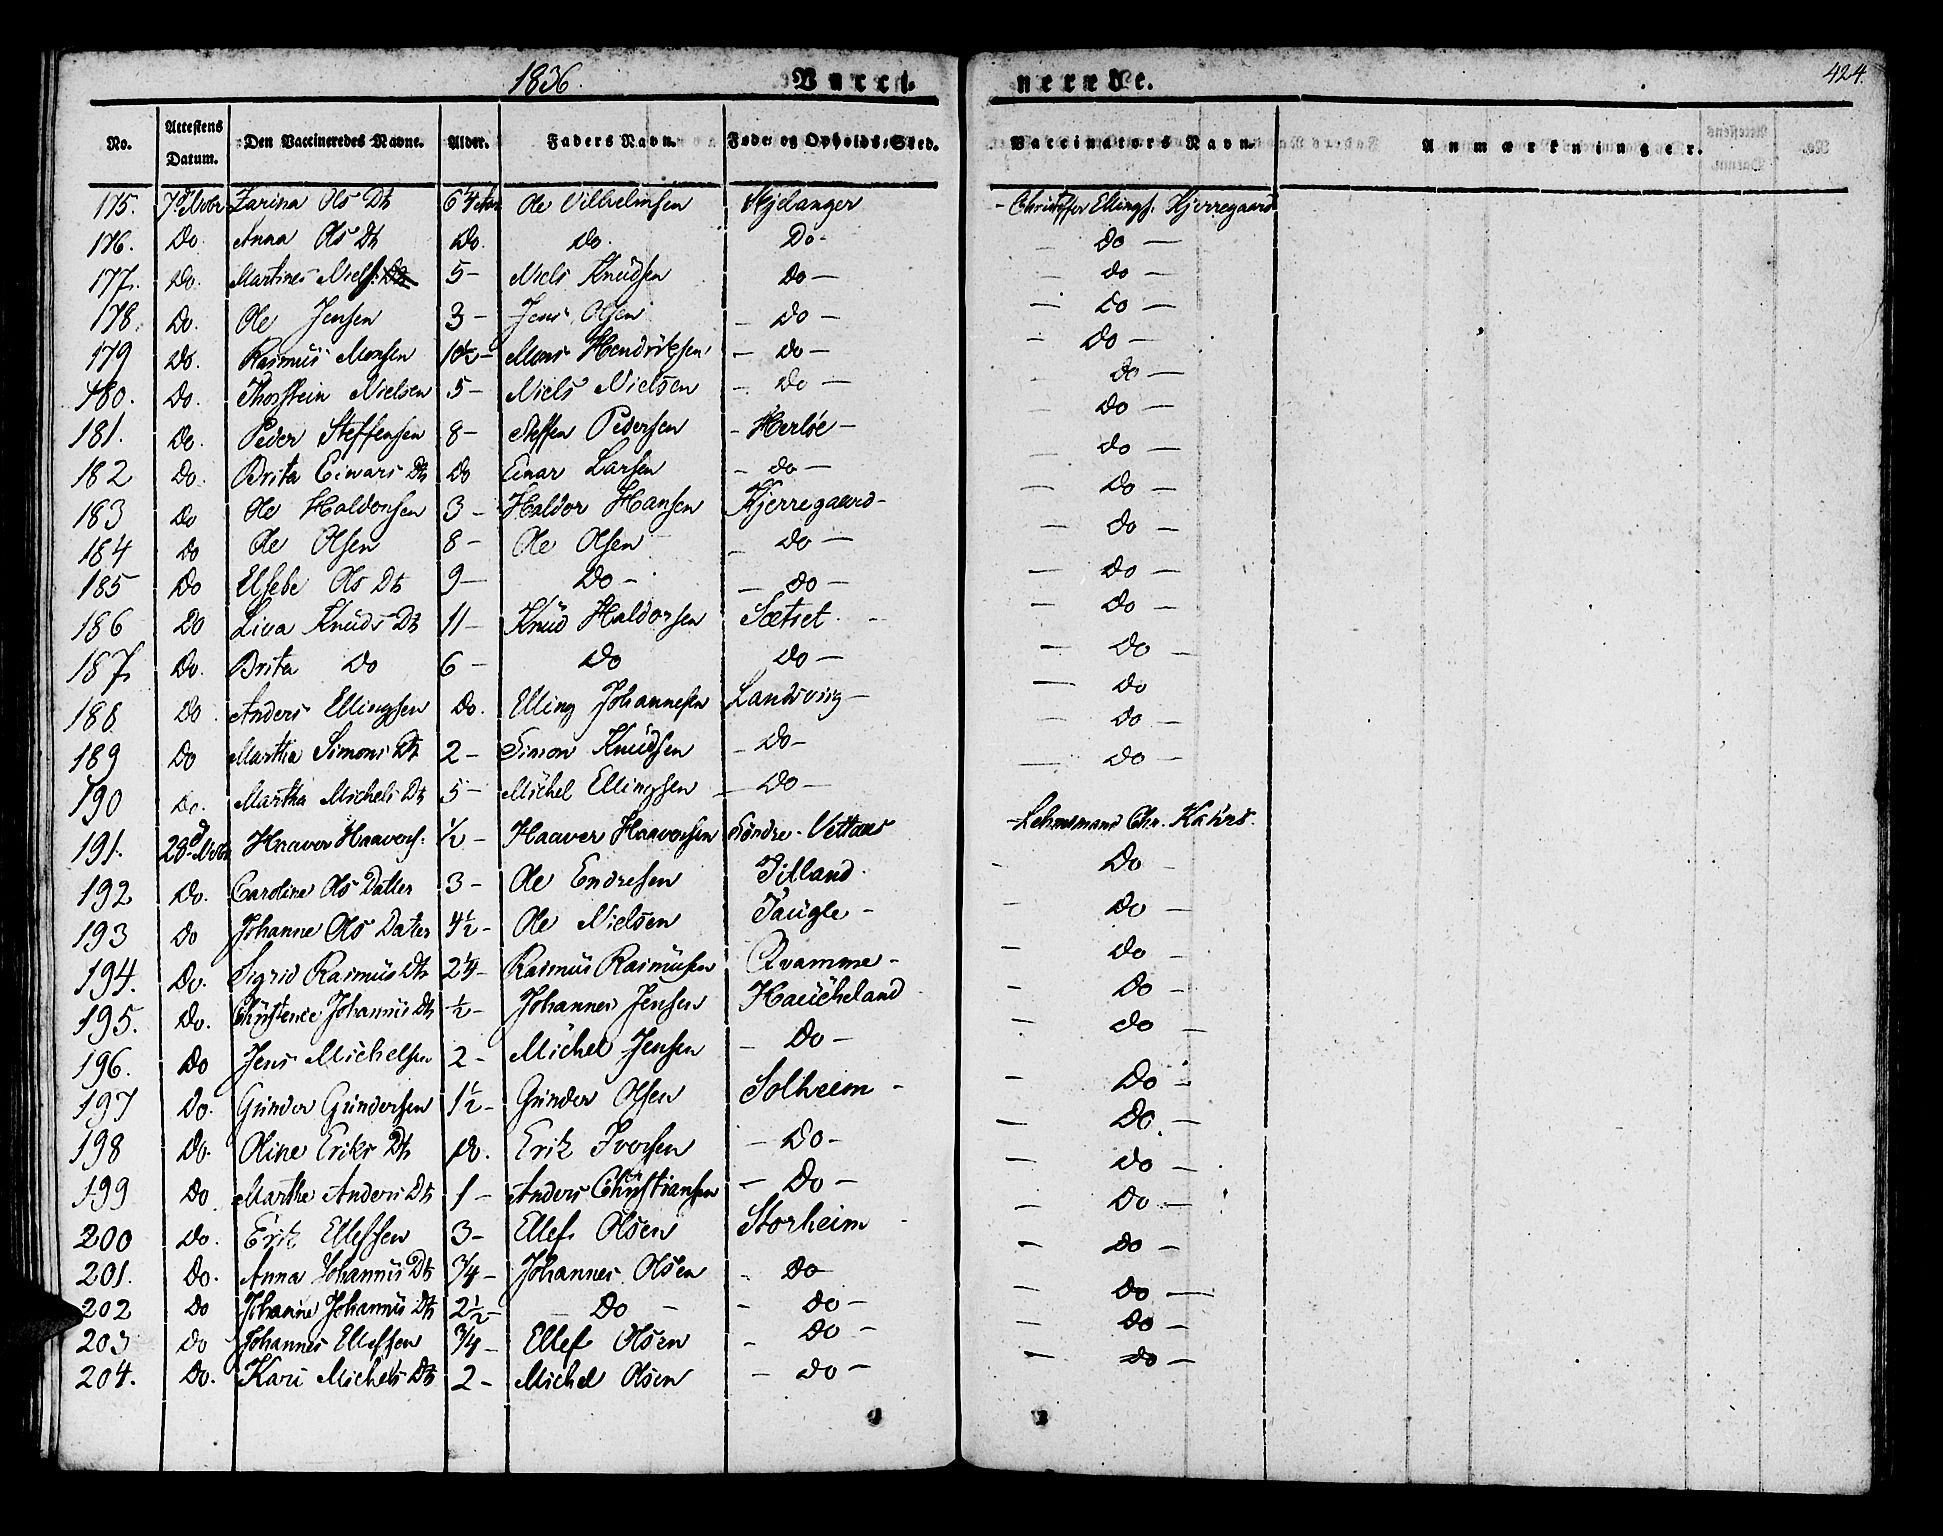 1836. Vacci- nerede. 424.
No. Attestens Datum. Den Vaccineredes Navne. Alder. Faders Navn. Føde- og Opholds-Sted. Vaccinators Navn. Anmærkninger.
175. 7de Novbr Zarina Ols Dtr 6 1/4 Ole Vilhelmsen Skjelanger - Christoffer Ellings. Kjerregaard
176. Do. Anna Ols Dtr Do. Do. Do- — Do —
177. Do. Martines Niels. 5- Niels Knüdsen Do — — Do —
178. Do. Ole Jensen 3- Jens Olsen — Do — — Do —
179 Do. Rasmus Monsen 10½- Mons Hendriksen — Do — - Do —
180. Do. Thorstein Nielsen 5- Niels Nielsen - Do — - Do —
181. Do. Peder Steffensen 8- Steffen Pedersen - Herløe - — Do —
182 Do. Brita Einars Dtr Do Einar Larsen — Do — — Do —
183 Do Ole Haldorsen 3- Haldor Hansen Kjerregaard- — Do —
184 Do Ole Olsen 8- Ole Olsen — Do — — Do —
185 Do Elsebe Ols Dtr 9- Do - — Do — — Do —
186 Do Liva Knüds Dtr 11- Knüd Haldorsen Sætret - — Do —
187. Do. Brita Do 6- Do Do — — Do —
188 Do. Anders Ellingsen Do. Elling Johannesen Landsvig — — Do
189 Do Martha Simons Dtr 2- Simon Knüdsen — Do- — Do —
190 Do. Martha Michels Dtr 5- Michel Ellingsen — Do — — Do —
191. 28de Novbr Haaver Haavers. ½- Haaver Haaversen Søndre - Lehnsmand Chr. Kahrs.
192 Do. Caroline Ols Datter 3- Ole Endresen - Do —
193 Do Johanne Ols Dater 4½- Ole Nielsen - Do —
194. Do. Sigrid Rasmüs Dtr 2¼- Rasmüs Rasmüsen Qvamme - — Do -
195. Do. Christence Johannis Dtr ½- Johannes Jensen Haücheland - Do —
196. Do Jens Michelsen 2- Michel Jensen — Do — — Do —
197 Do. Günder Gündersen 1½- Günder Olsen Solheim - - Do -
198 Do. Oline Eriks Dtr Do. Erik Iversen — Do - — Do. —
199 Do Marthe Anders Dtr 1- Anders Christiansen — Do — — Do —
200 Do. Erik Ellefsen 3- Ellef Olsen Storheim - - Do —
201. Do. Anna Johannis Dtr ¾- Johannes Olsen - Do - Do -
202 Do Johanne Johannis Dtr 2½- — Do — - Do - — Do —
203 Do Johannes Ellefsen ¾- Ellef Olsen - Do - — Do —
204. Do. Kari Michels Dtr 2- Michel Olsen — Do — — Do —